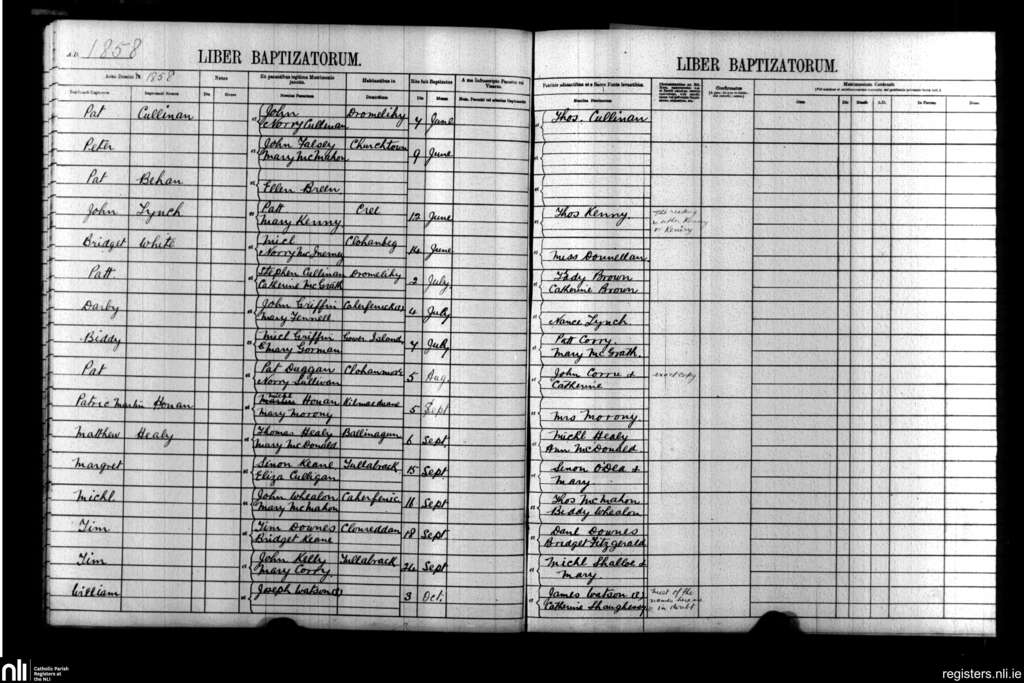 A.D. 1858
LIBER BAPTIZATORUM.
LIBER BAPTIZATORUM.
Anno Domini 18 1858
Notus
Ex parentibus legitimo Matrimonio junctis.
Habitantibus in
Rite fuit Baptizatus
A me Infrascripto Parocho vel Vicario.
Die
Nomina Parentum
Domicilium
Die
Mense
Pat Cullinan John Dromelihy 7 June Thos. Cullinan
Norry Cullinan
Peter John Falsey Churchtown 9 June
Mary McMahon
Pat Behan
Ellen Breen
John Lynch Patt Cree 12 June Thos Kenny. The reading
Mary Kenny is either Kenny
or Keniry
Bridget White Micl Clohanbeg 14 June
Norry McInerney Miss Donnellan
Patt Stephen Cullinan Dromelihy 2 July Pady Brown
Catherine McGrath Catherine Brown
Darby John Griffin 4 July
Mary Fennell Nance Lynch
Biddy Micl Griffin Gower Island 7 July Patt Corry.
Mary Gorman Mary McGrath.
Pat Pat Duggan Clohanmore 5 Aug. John Corry & exact copy
Norry Sullivan Catherine
Patric Martin Honan Martin Honan 5 Sept
Mary Morony Mrs Morony
Matthew Healy Thomas Healy Ballinagun 6 Sept Michl Healy
Mary McDonald Ann McDonald
Margret Sinon Keane Tullabrack 15 Sept Sinon O'Dea &
Eliza Culligan Mary
Michl John Whealon 16 Sept Thos McMahon
Mary McMahon Biddy Whealon
Tim Tim Downes Clonreddan 18 Sept Danl Downes
Bridget Keane Bridget Fitzgerald
Tim John Kelly Tullabrack 24 Sept Michl Shalloe &
Mary Corry Mary.
William Joseph Watson 3 Oct. James Watson most of the
Catherine Shaughnessy names here are
in doubt
nli
Catholic Parish
Registers at
the NLI
registers.nli.ie